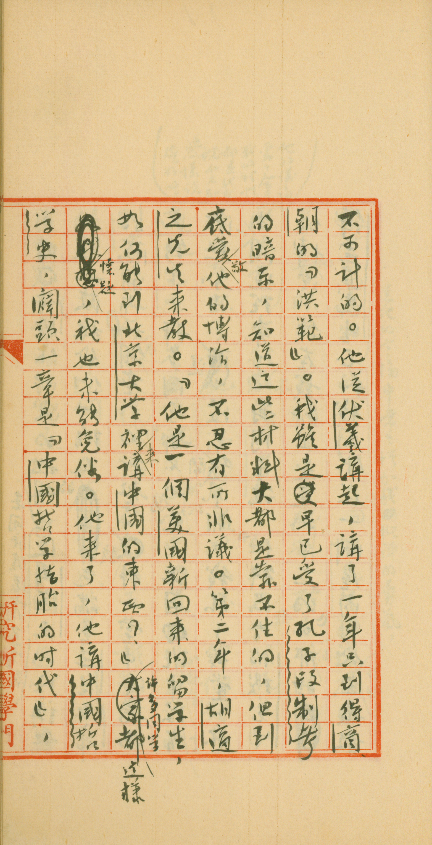 不可计的。他從伏羲講起，講了一年只到得商
朝的「洪範」。我雖是早已受了孔子改制考
的暗示，知道这些材料大都是靠不住的，但到
底愛敬他的博洽，不忍有所非議。第二年，胡適
之先生来教。「他是一個美國新回来的留学生，
如何能到北京大学裡来講中國的東西？」許多同学都这樣
懷疑，我也未能免俗。他来了，他講中國哲
学史，闢頭一章是「中國哲学结胎的时代」，
研究所國學門